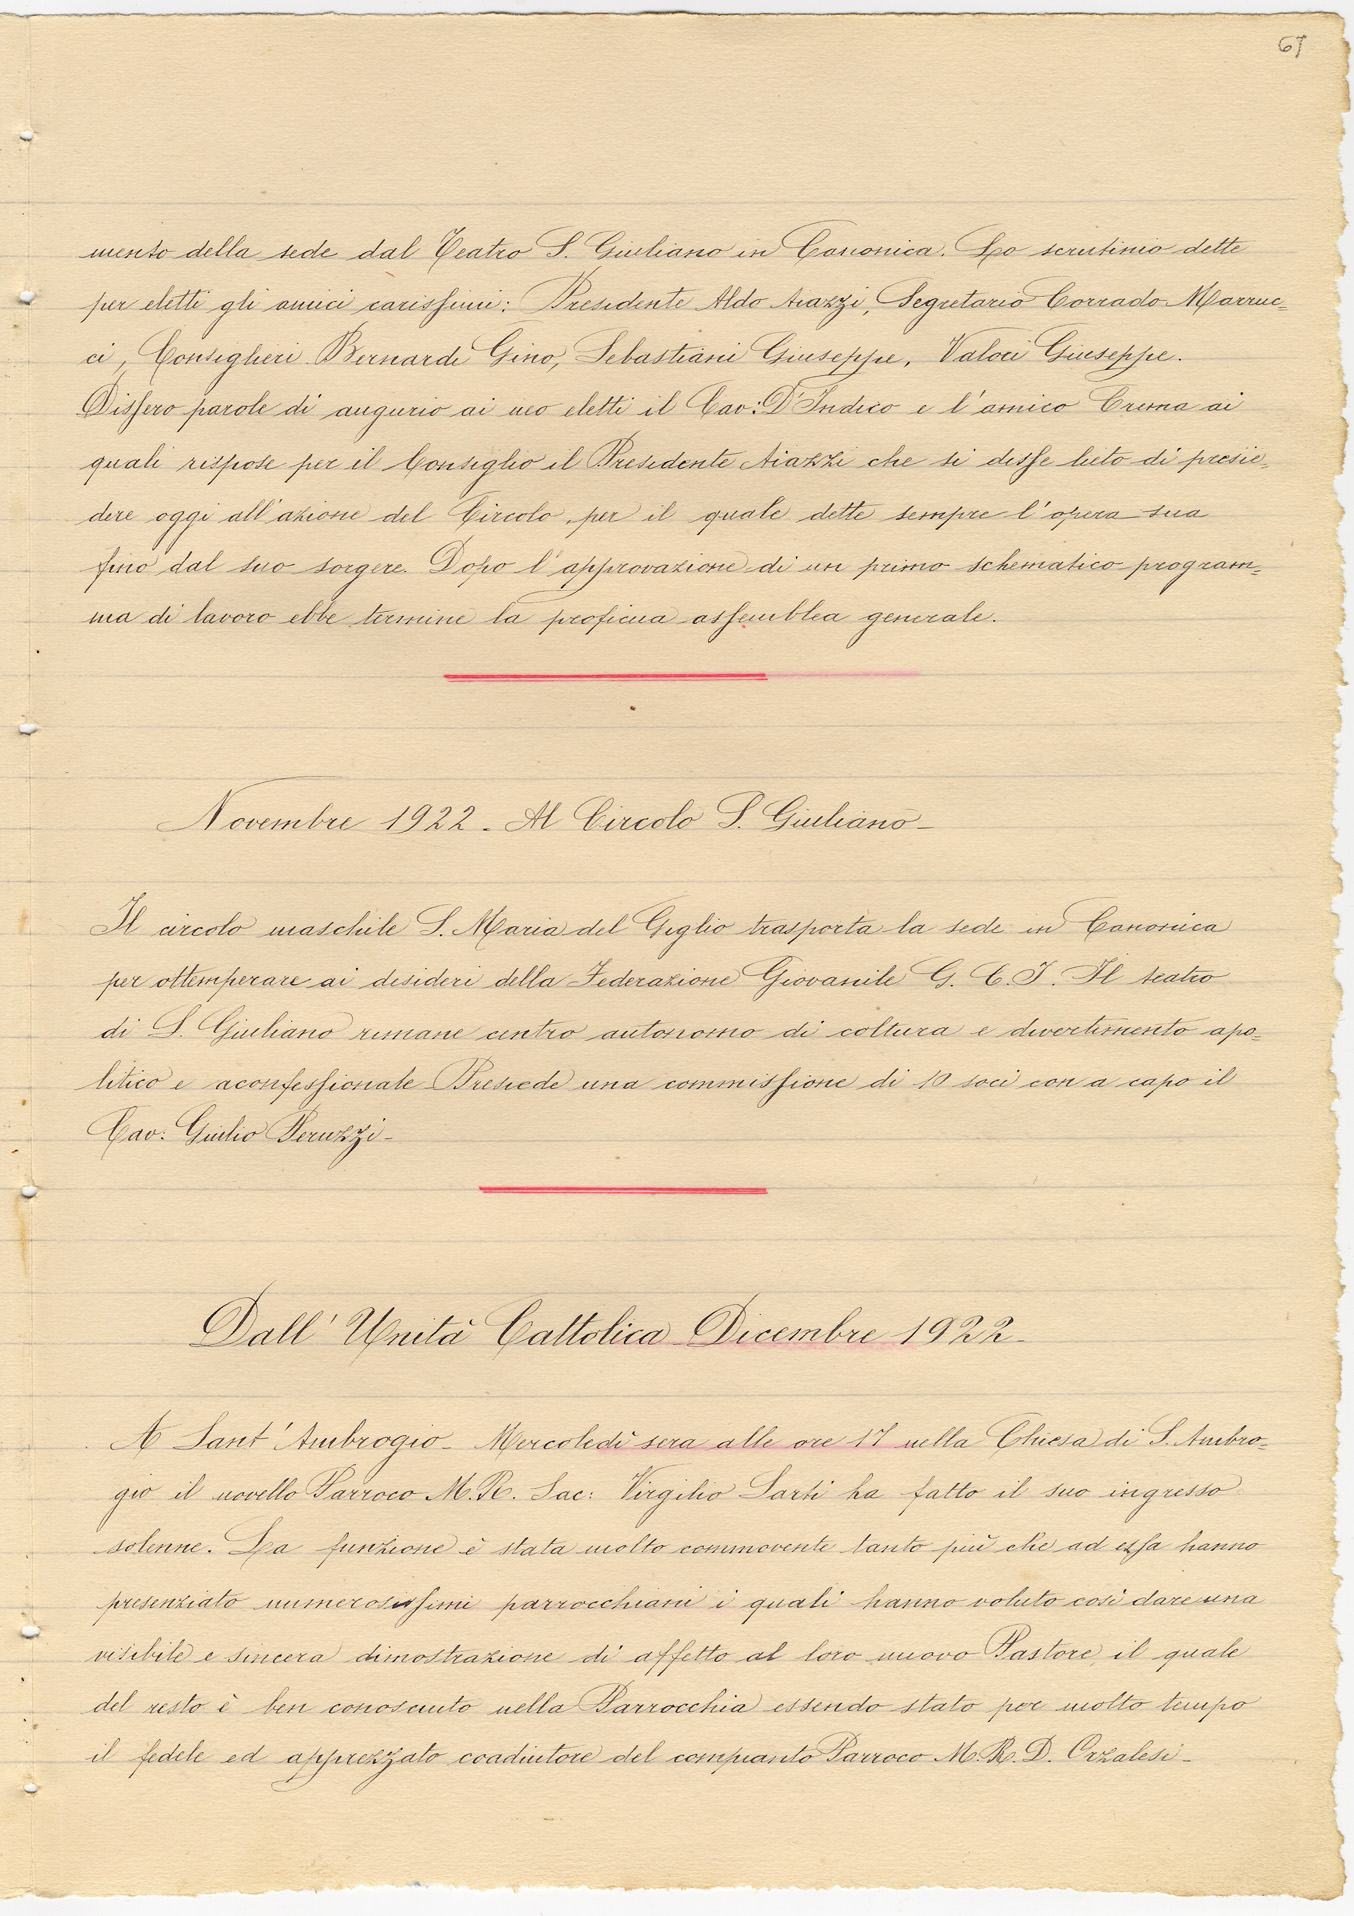 67
mento della sede dal Teatro S. Giuliano in Canonica. Lo scrutinio dette
per eletti gli amici carissimi: Presidente Aldo Aiazzi, Segretario Corrado Marruc=
ci, Consiglieri Bernardi Gino, Sebastiani Giuseppe, Valoci Giuseppe.
Dissero parole di augurio ai neo eletti il Cav: D'Indico e l'amico Crema ai
quali rispose per il Consiglio il Presidente Aiazzi che si disse lieto di presie=
dere oggi all'azione del Circolo, per il quale dette sempre l'opera sua
fino dal suo sorgere. Dopo l'approvazione di un primo schematico program=
ma di lavoro ebbe termine la proficua assemblea generale.
Novembre 1922 - Al Circolo S. Giuliano -
Il circolo maschile S. Maria del Giglio trasporta la sede in Canonica
per ottemperare ai desideri della Federazione Giovanile G. C. I. Il teatro
di S. Giuliano rimane centro autonomo di coltura e divertimento apo=
litico e aconfessionale Presiede una commissione di 10 soci con a capo il
Cav: Giulio Peruzzi -
Dall'Unità Cattolica - Dicembre 1922 -
A Sant'Ambrogio - Mercoledì sera alle ore 17 nella Chiesa di S. Ambro=
gio il novello Parroco M. R. Sac: Virgilio Sarti ha fatto il suo ingresso
solenne. La funzione è stata molto commovente tanto più che ad essa hanno
presenziato numerosissimi parrocchiani i quali hanno voluto così dare una
visibile e sincera dimostrazione di affetto al loro nuovo Pastore, il quale
del resto è ben conosciuto nella Parrocchia essendo stato per molto tempo
il fedele ed apprezzato coadiutore del compianto Parroco M. R. D. Orzalesi -